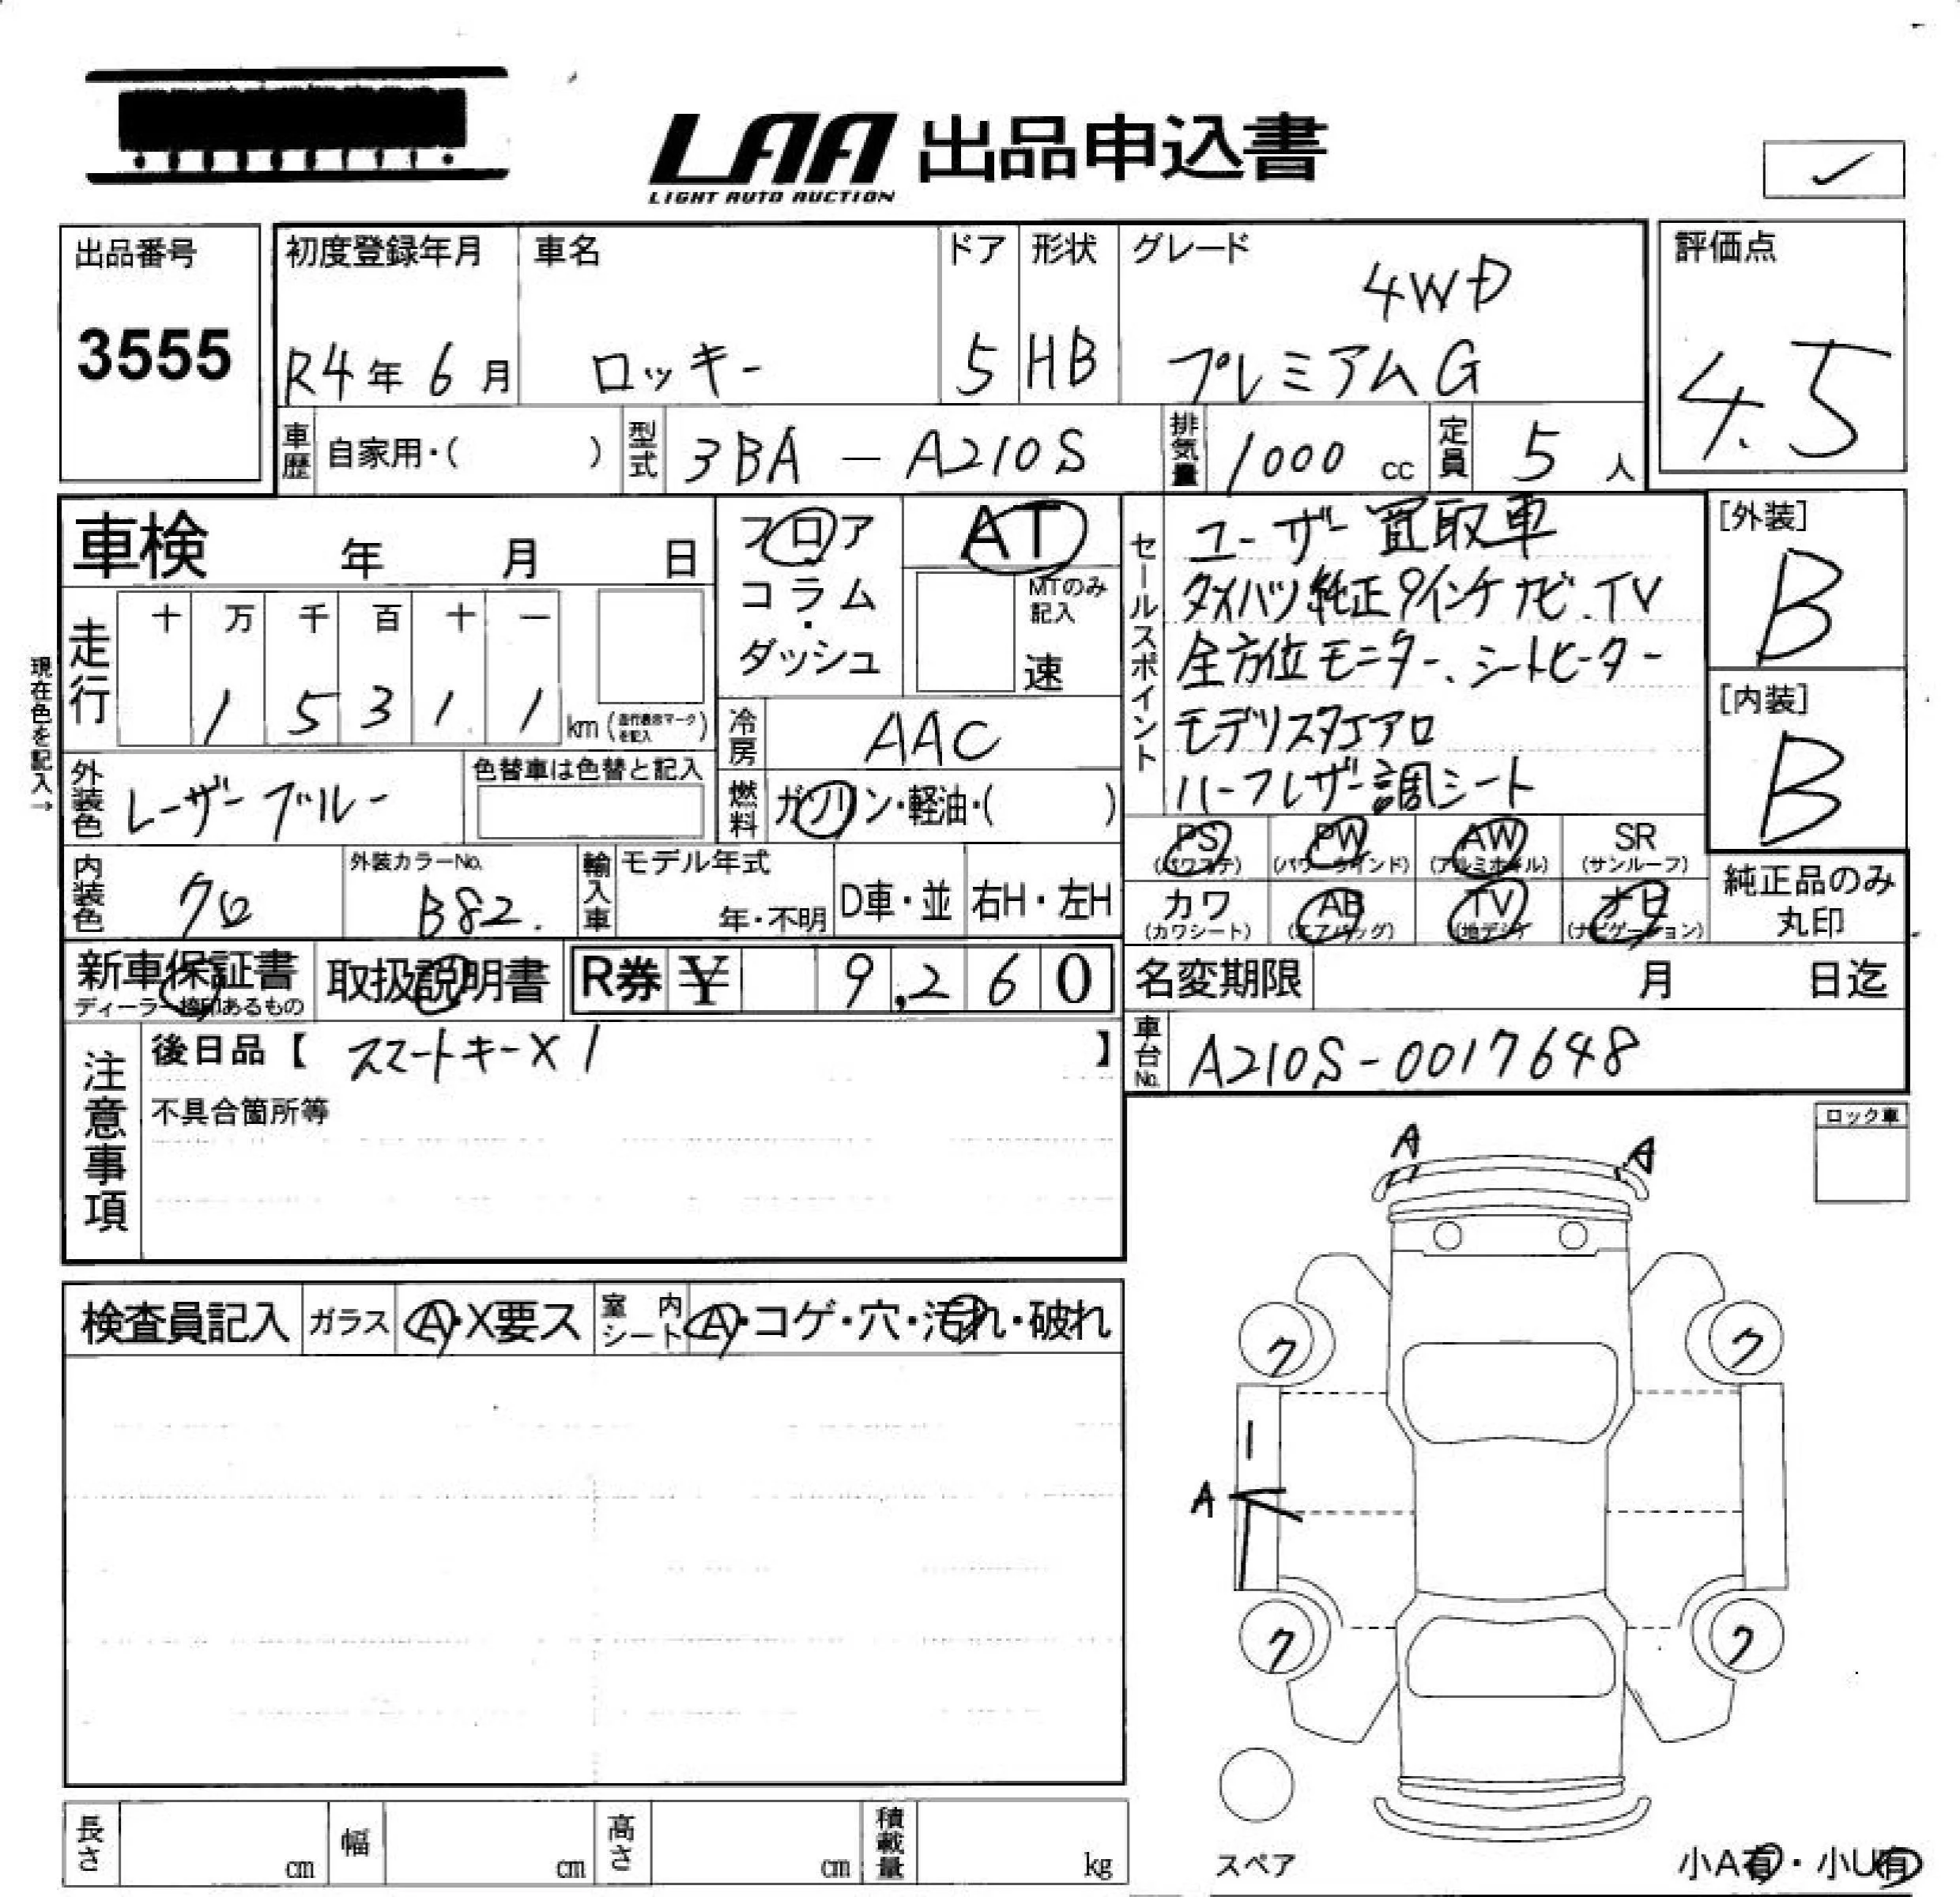 LAA 出品申込書
LIGHT AUTO AUCTION
✓
出品番号
3555
初度登録年月
R4年 6月
車名
ロッキー
ドア
5
形状
HB
グレード
4WD
プレミアムG
評価点
4.5
車歴 自家用・( )
型式 3BA - A210S
排気量 1000 cc
定員 5 人
車検 年 月 日
現在色を記入→
走行
十 万 千 百 十 一
1 5 3 1 1 km (走行表示マークを記入)
フロア
・
コラム
・
ダッシュ
AT
MTのみ
記入
速
冷房 AAC
燃料 ガソリン・軽油・( )
外装色 レーザーブルー
色替車は色替と記入
内装色 クロ
外装カラーNo.
B82.
輸入車
モデル年式
年・不明
D車・並
右H・左H
セールスポイント
ユーザー買取車
ダイハツ純正9インチナビ、TV
全方位モニター、シートヒーター
モデリスタエアロ
ハーフレザー調シート
[外装]
B
[内装]
B
PS
(パワステ)
PW
(パワーウインド)
AW
(アルミホイル)
SR
(サンルーフ)
カワ
(カワシート)
AB
(エアバッグ)
TV
(地デジ)
ナビ
(ナビゲーション)
純正品のみ
丸印
新車保証書
ディーラー捺印あるもの
取扱説明書
R券 ¥ 9,260
名変期限 月 日迄
車台No. A210S-0017648
注意事項
後日品【 スマートキー×1 】
不具合箇所等
ロック車
検査員記入
ガラス
A・X要ス
室内シート
A・コゲ・穴・汚れ・破れ
A
A
ク
ク
A
ク
ク
スペア
小A有・小U有
長さ cm
幅 cm
高さ cm
積載量 kg